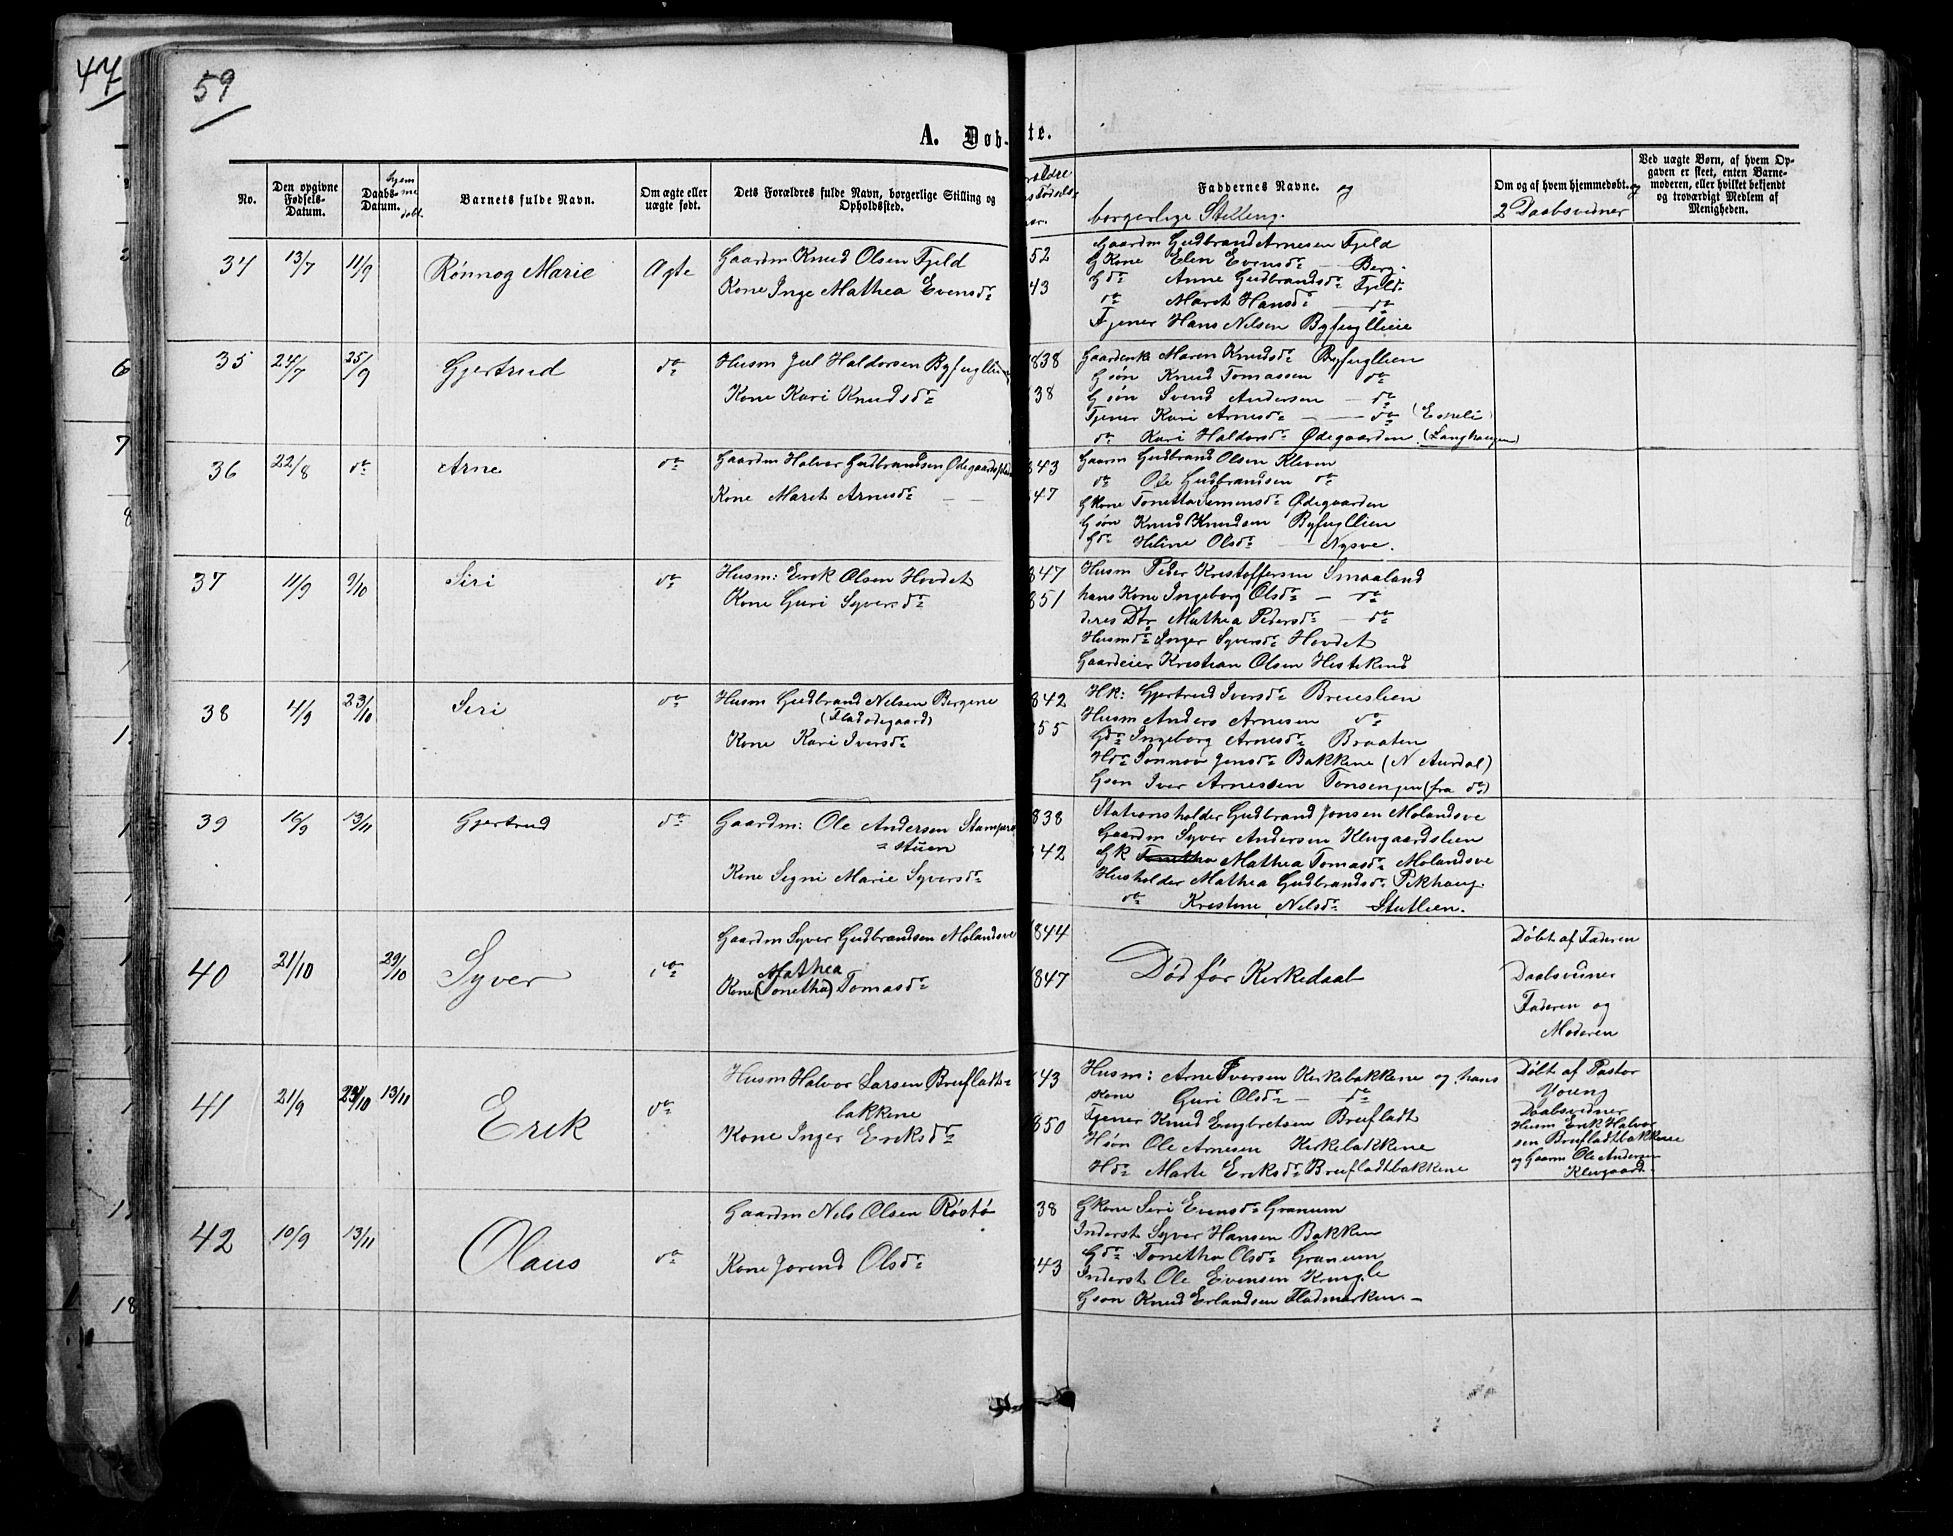 47
59
A. Døb-te.
No.
Den opgivne Fødsels-Datum.
Daabs-Datum.
Hjemmedøbt.
Barnets fulde Navn.
Om ægte eller uægte født.
Dets Forældres fulde Navn, borgerlige Stilling og Opholdssted.
Faddernes Navne. og
borgerlige Stilling.
Om og af hvem hjemmedøbt. og
2 Daabsvidner
Ved uægte Børn, af hvem Op-
gaven er skeet, enten Barne-
moderen, eller hvilket bekjendt
og troværdigt Medlem af
Menigheden.
34 13/7 11/9 Rønnog Marie Ægte
Gaardm Knud Olsen Fjeld
Kone Inge Mathea Evensdr
52
43
Gaardm Gudbrand Arnesen Fjeld
GKone Elen Evensdr — Berg.
Gdr Anne Gudbrandsdr Fjeld
do Marit Hansdr — do
Tjener Hans Nilsen Byfugllien
35 24/7 25/9 Gjertrud do
Husm Jul Haldorsen Byfugllien
Kone Kari Knudsdr
838
38
Gaardenk Maren Knudsdr Byfugllien
Gsøn Knud Tomassen do
Gsøn Svend Andersen — do
Tjener Kari Arnesdr — do (Espeli)
do Kari Haldorsdr Ødegaarden (Langhaugen)
36 22/8 do Arne do
Gaardm Halvor Gudbrandsen Ødegaards
Kone Marit Arnesdr — —
843
47
Gaarm Gudbrand Olsen Kleven
do Ole Gudbrandsen do
GKone Tonetta Simensdr Ødegaarden
Gsøn Knud Knudsen Byfugllien
Gdr Heline Olsdr — Nysve.
37 11/9 9/10 Siri do
Husm: Erik Olsen Hovdet
Kone Guri Syversdr
847
851
Husm Peder Kristoffersen Smaaland
hans Kone Ingeborg Olsdr — do
deres Dtr Mathea Pedersdr — do
Husmdr Inger Syversdr Hovdet
Gaardeier Kristian Olsen Hestekind
38 4/9 23/10 Siri do
Husm Gudbrand Nilsen Bergene
(Fladødegaard)
Kone Kari Iversdr
842
855
Hk: Gjertrud Iversdr Brueslien
Husm Anders Arnesen do
Gdr Ingeborg Arnesdr Braaten
Hdr Sønnøv Jensdr Bakkene (N Aurdal)
Gsøn Iver Arnessen Tonsengen (fra do)
39 16/9 13/11 Gjertrud do
Gaardm: Ole Andersen Stampe
= stuen
Kone Segni Marie Syversdr
838
842
Stationsholder Gudbrand Jonsen Molandsve
Gaardm Syver Andersen Klevgaardslien
GK Tonetha Mathea Tomasdr Molandsve
Husholder Mathea Gudbrandsdr Pikhaug.
do Kristine Nilsdr Stutlien.
40 21/10 29/10 Syver do
Gaardm Syver Gudbrandsen Molandsve
Mathea
Kone (Tonetha) Tomasdr
844
847
Død før Kirkedaab
Døbt af Faderen
Daabsvidner
Faderen og
Moderen
41 21/9 23/10 13/11 Erik do
Husm Halvor Larsen Brufladt=
bakkene
Kone Inger Eriksdr
843
850
Husm: Arne Iversen Kirkebakkene og hans
Kone Guri Olsdr — do
Tjener Knud Engbretsen Brufladt
Hsøn Ole Arnesen Kirkebakkene
Hdr Marte Eriksdr Brufladtbakkene
Døbt af Pastor
Daabsvidner
Husm Erik Halvor
sen Brufladtbakkene
og Gaarm Ole Andersen
Klevgaard.
42 10/9 13/11 Olaus do
Gaardm Nils Olsen Røstø
Kone Jorend Olsdr
38
843
GKone Siri Evensdr Granum
Inderst Syver Hansen Bakken
Gdr Tonetha Olsdr Granum
Inderst Ole Evensen Krugle
Gsøn Knud Erlandsen Fladmarken. —